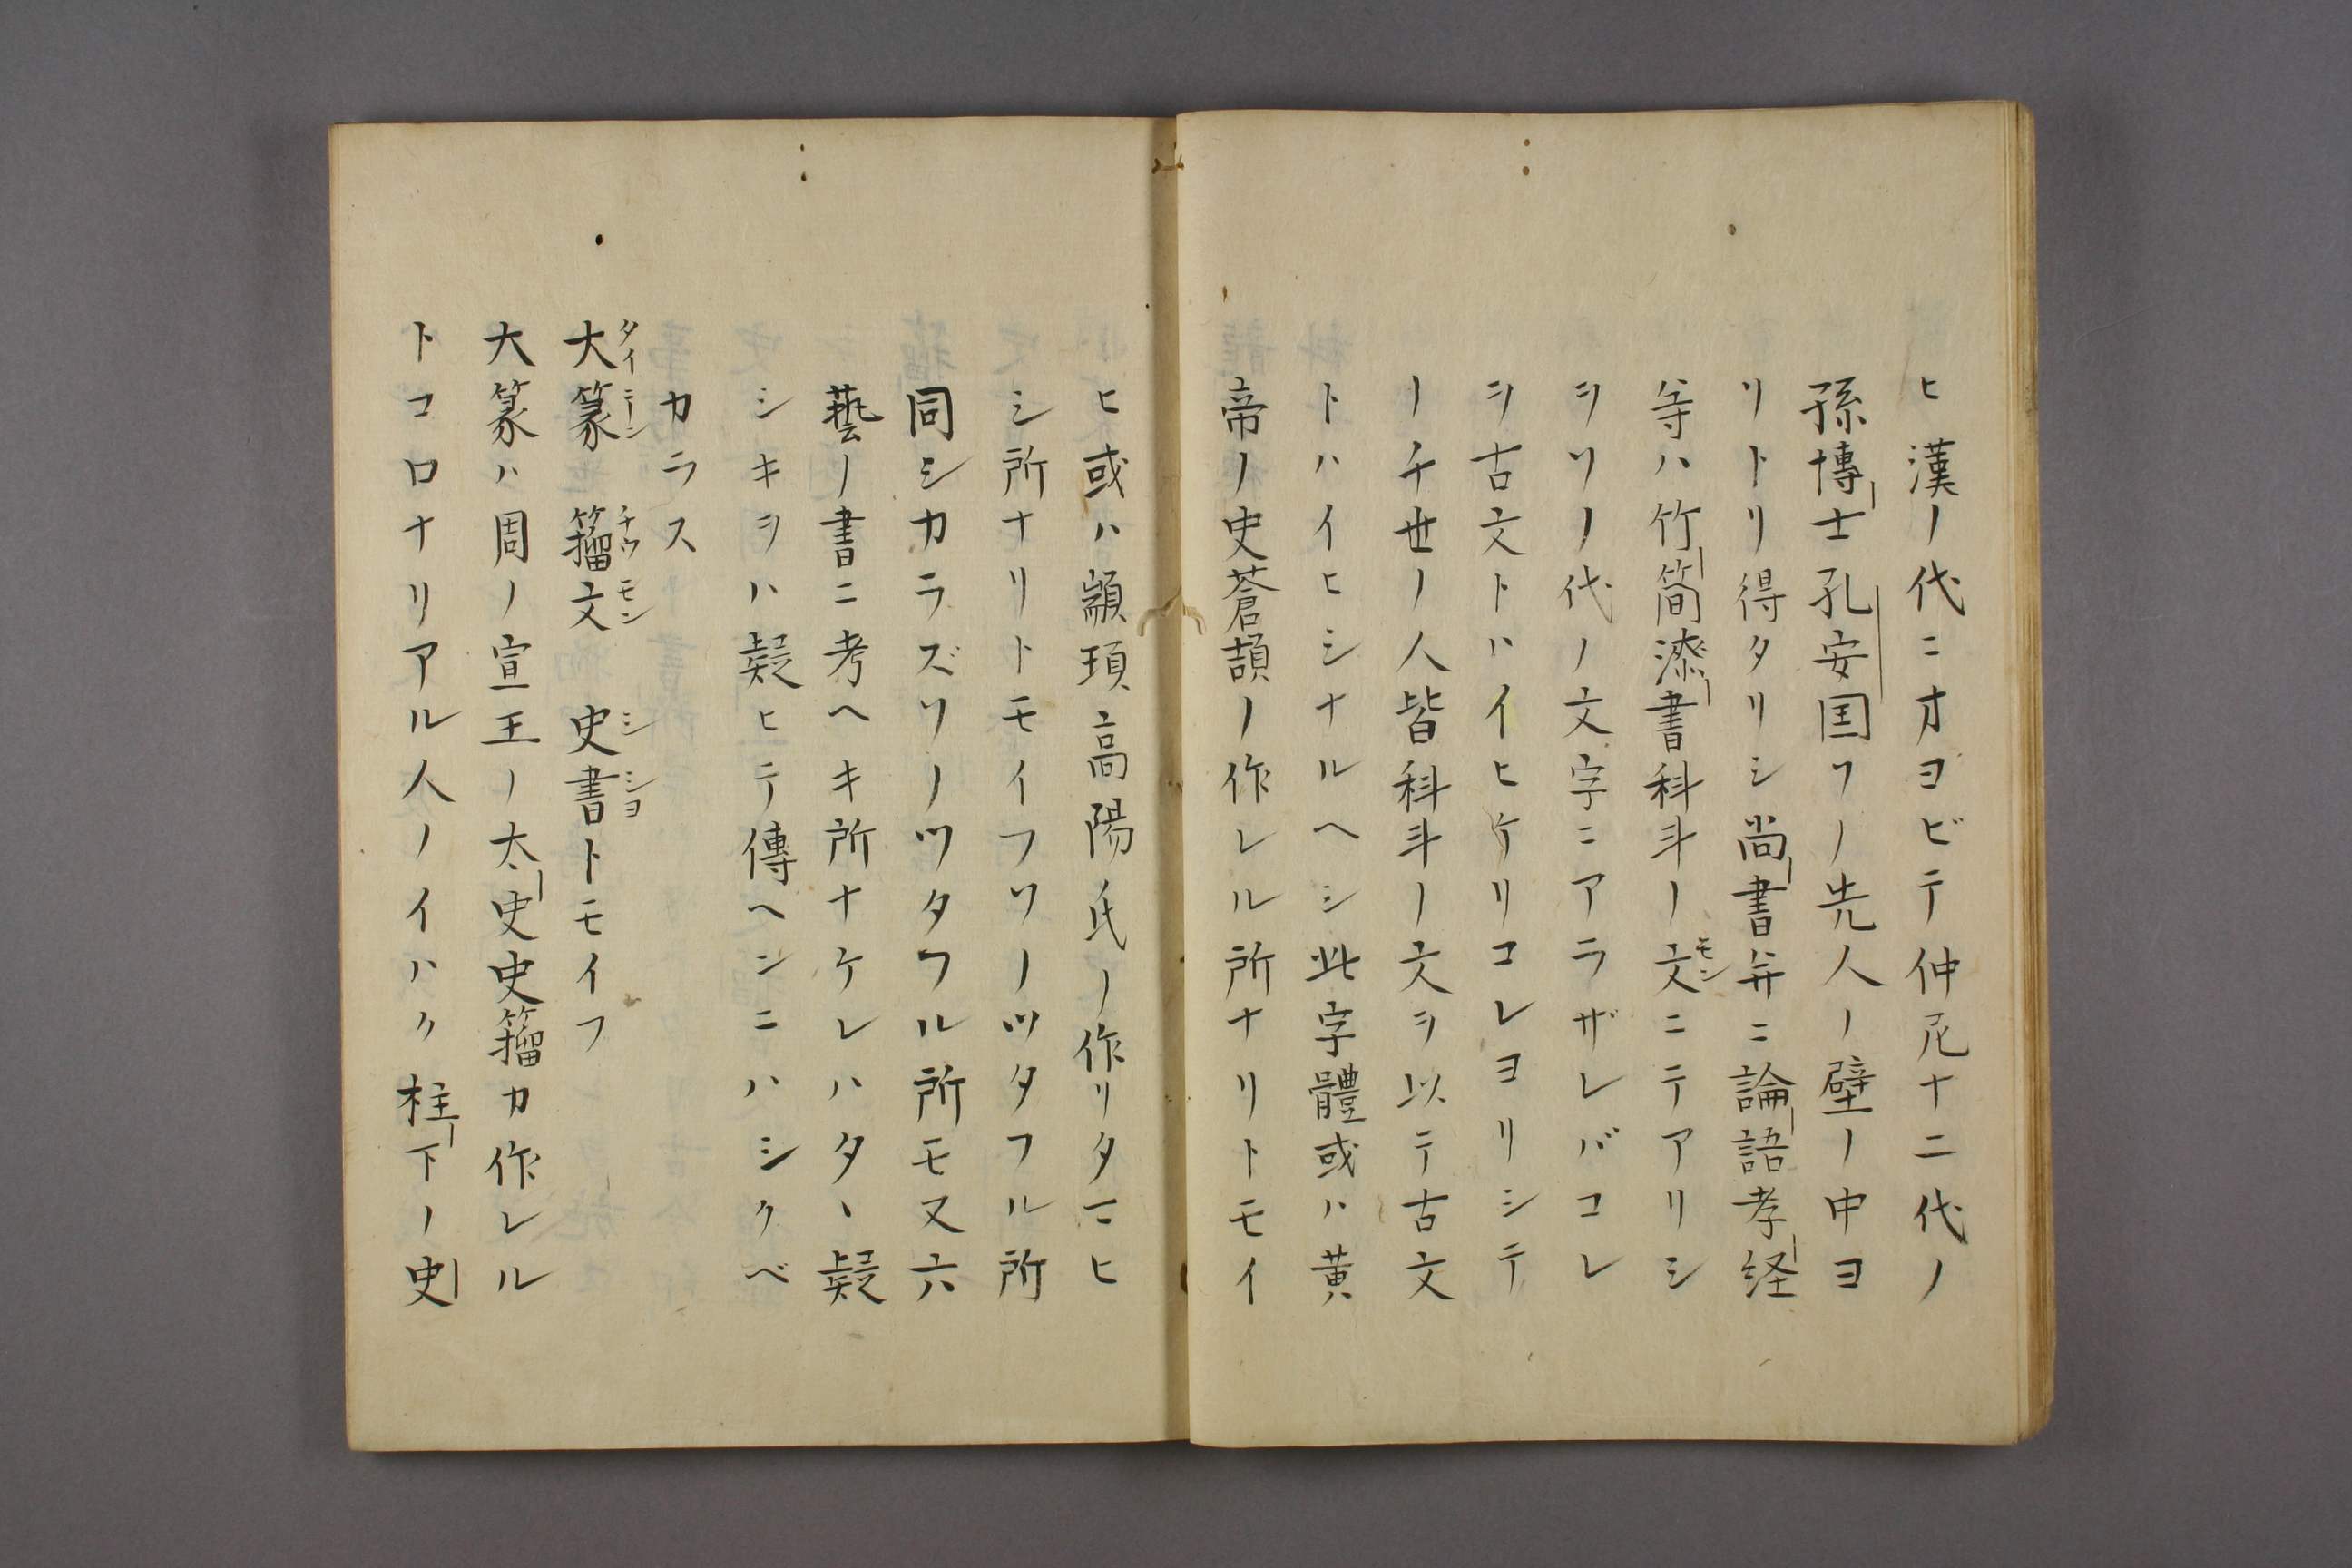 ヒ漢ノ代ニオヨビテ仲尼十二代ノ
孫博士孔安国ソノ先人ノ壁ノ中ヨ
リトリ得タリシ尚書并ニ論語孝経
等ハ竹簡漆書科斗ノ文モンニテアリシ
ヲソノ代ノ文字ニアラザレバコレ
ヲ古文トハイヒケリコレヨリシテ
ノチ世ノ人皆科斗ノ文ヲ以テ古文
トハイヒシナルヘシ此字體或ハ黄
帝ノ史蒼頡ノ作レル所ナリトモイ
ヒ或ハ顓頊高陽氏ノ作リタマヒ
シ所ナリトモイフソノツタフル所
同シカラズソノツタフル所モ又六
藝ノ書ニ考ヘキ所ナケレハタヽ疑
シキヲハ疑ヒテ傳ヘンニハシクベ
カラス
大篆タイテーン 籀文チウモン 史書シショトモイフ
大篆ハ周ノ宣王ノ太史史籀カ作レル
トコロナリアル人ノイハク柱下ノ史